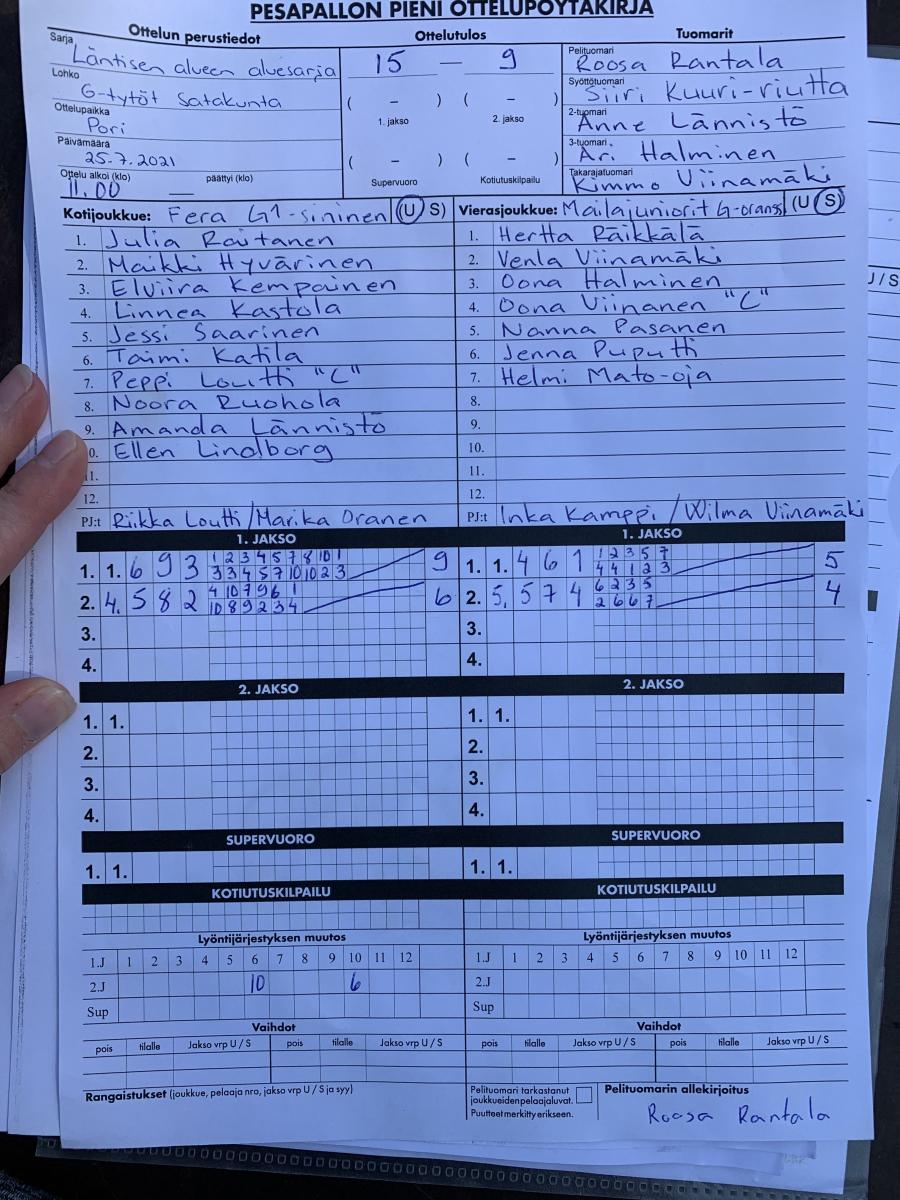 PESÄPALLON PIENI OTTELUPÖYTÄKIRJA
Ottelun perustiedot
Sarja
Läntisen alueen aluesarja
Lohko
G-tytöt Satakunta
Ottelupaikka
Pori
Päivämäärä
25.7.2021
Ottelu alkoi (klo)
päättyi (klo)
11.00
Ottelutulos
15 — 9
( – ) ( – )
1. jakso 2. jakso
( – ) ( – )
Supervuoro Kotiutuskilpailu
Tuomarit
Pelituomari
Roosa Rantala
Syöttötuomari
Siiri Kuuri-riutta
2-tuomari
Anne Lännistö
3-tuomari
Ari Halminen
Takarajatuomari
Kimmo Viinamäki
Kotijoukkue: Fera G1-sininen (U S)
1. Julia Raitanen
2. Maikki Hyvärinen
3. Elviira Kempainen
4. Linnea Kastola
5. Jessi Saarinen
6. Taimi Katila
7. Peppi Loutti "C"
8. Noora Ruohola
9. Amanda Lännistö
10. Ellen Lindborg
11.
12.
PJ:t Riikka Loutti/Marika Oranen
Vierasjoukkue: Mailajuniorit G-oranssi (U S)
1. Hertta Räikkälä
2. Venla Viinamäki
3. Oona Halminen
4. Oona Viinanen "C"
5. Nanna Pasanen
6. Jenna Puputti
7. Helmi Mato-oja
8.
9.
10.
11.
12.
PJ:t Inka Kamppi/Wilma Viinamäki
1. JAKSO
1. 1. 6 9 3 1 2 3 4 5 7 8 10 1 9
3 3 4 5 7 10 10 2 3
2. 4. 5 8 2 4 10 7 9 6 1 6
10 8 9 2 3 4
3.
4.
1. JAKSO
1. 1. 4 6 1 1 2 3 5 7 5
4 4 1 2 3
2. 5. 5 7 4 6 2 3 5 4
2 6 6 7
3.
4.
2. JAKSO
1. 1.
2.
3.
4.
2. JAKSO
1. 1.
2.
3.
4.
SUPERVUORO
1. 1.
SUPERVUORO
1. 1.
KOTIUTUSKILPAILU
KOTIUTUSKILPAILU
Lyöntijärjestyksen muutos
1.J 1 2 3 4 5 6 7 8 9 10 11 12
2.J 10 6
Sup
Lyöntijärjestyksen muutos
1.J 1 2 3 4 5 6 7 8 9 10 11 12
2.J
Sup
Vaihdot
pois tilalle Jakso vrp U / S pois tilalle Jakso vrp U / S
Vaihdot
pois tilalle Jakso vrp U / S pois tilalle Jakso vrp U / S
Rangaistukset (joukkue, pelaaja nro, jakso vrp U / S ja syy)
Pelituomari tarkastanut
joukkueiden pelaajaluvat.
Puutteet merkitty erikseen.
Pelituomarin allekirjoitus
Roosa Rantala
J / S